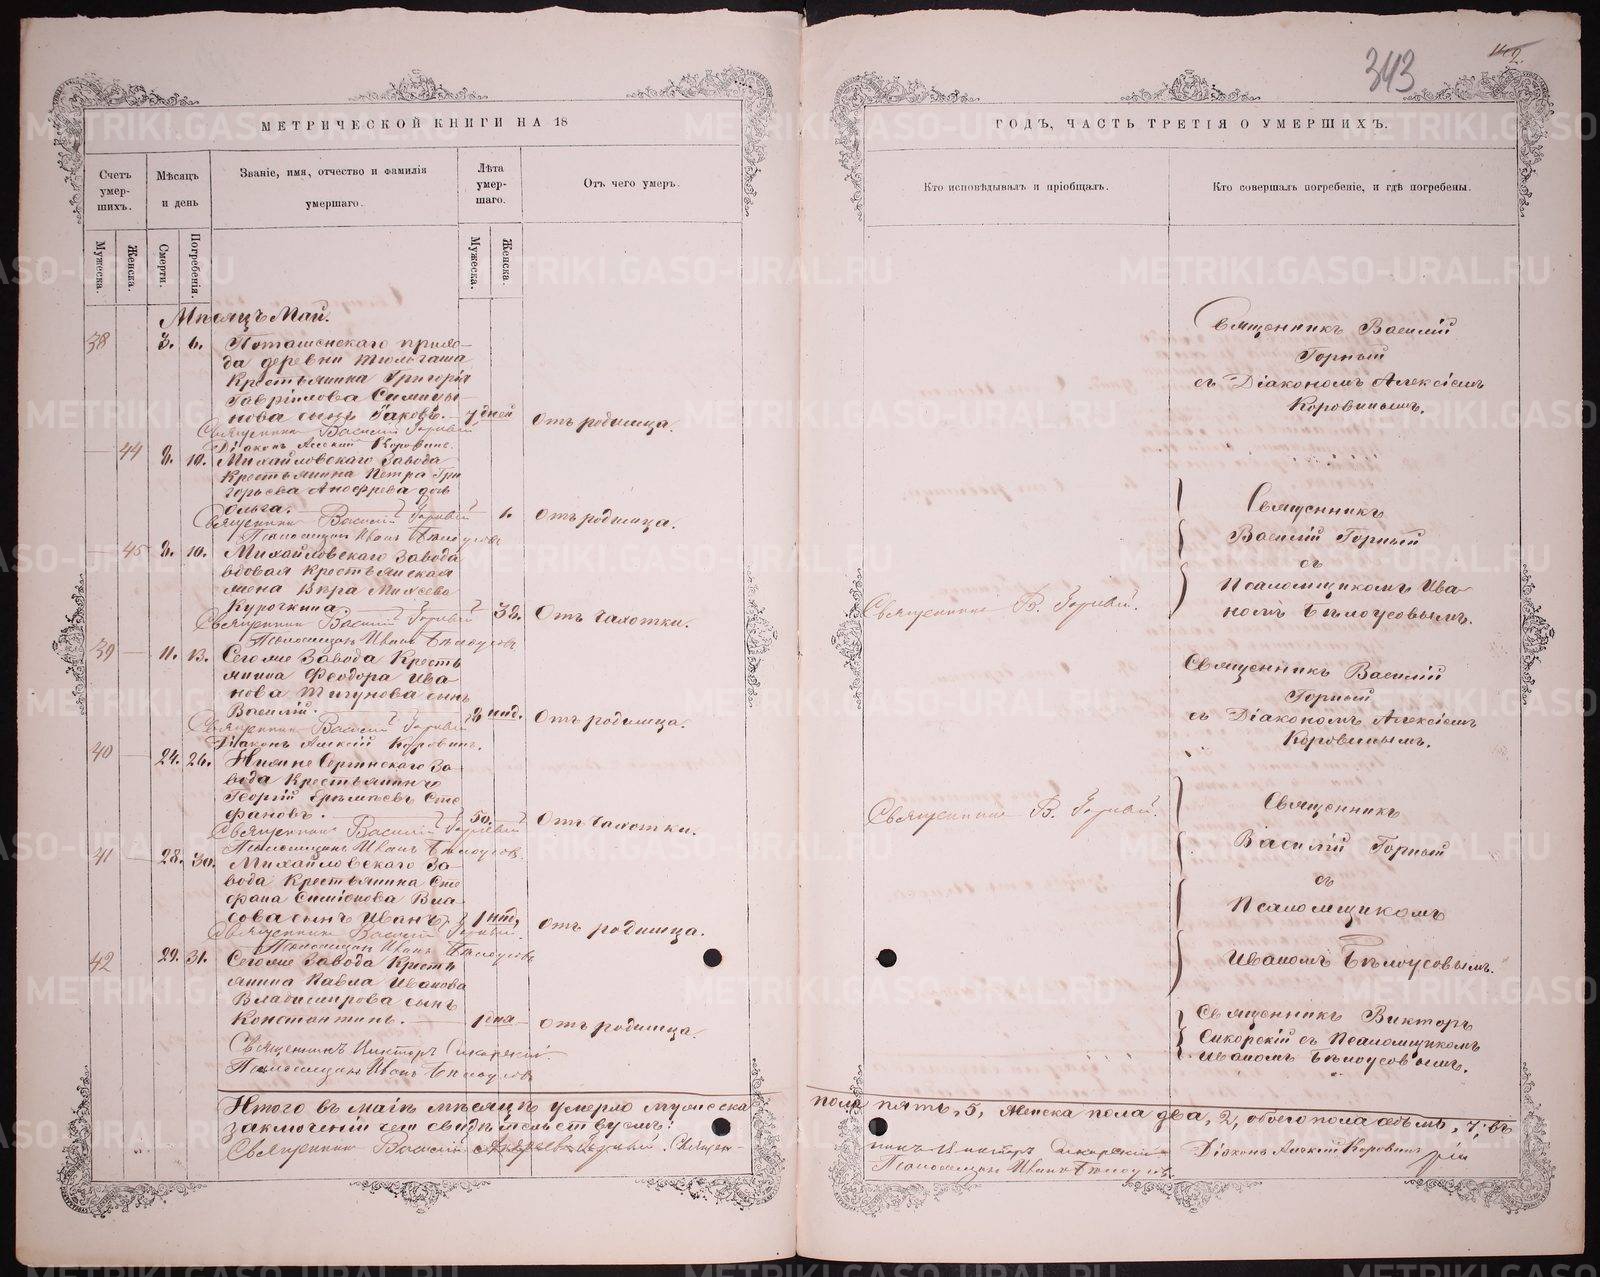 343
МЕТРИЧЕСКОЙ КНИГИ НА 18
ГОДЪ, ЧАСТЬ ТРЕТІЯ О УМЕРШИХЪ.
Счетъ умер-шихъ.
Мужеска.
Женска.
Мѣсяцъ и день
Смерти.
Погребенія.
Званіе, имя, отчество и фамилія
умершаго.
Лѣта умер-шаго.
Мужеска.
Женска.
Отъ чего умеръ.
Кто исповѣдывалъ и пріобщалъ.
Кто совершалъ погребеніе, и гдѣ погребены.
Мѣсяцъ Май.
38 3. 6. Поташенскаго прихо-
да деревни Тюльгаша
Крестьянина Григорія
Гавріилова
нова сынъ Іаковъ. 7 дней Отъ родимца.
Священникъ Василій Горный
Діаконъ Алексій Коровинъ.
Священникъ Василій
Горный
съ Діакономъ Алексіемъ
Коровинымъ.
44 8. 10. Михайловскаго завода
Крестьянина Петра Гри
горьева Анофрева дочь
Ольга. 1. Отъ родимца.
Священникъ Василій Горный
Псаломщикъ Иванъ Бѣлоусовъ
Священникъ
Василій Горный
съ
Псаломщикомъ Ива-
номъ Бѣлоусовымъ.
45 8. 10. Михайловскаго завода
вдовая крестьянская
жена Вѣра
Курочкина 32. Отъ чахотки.
Священникъ Василій Горный
Псаломщикъ Иванъ Бѣлоусовъ
Священникъ В. Горный.
39 11. 13. Сегоже завода Кресть
янина Феодора Ива
нова Тигунова сынъ
Василій. 2 нед. Отъ родимца.
Священникъ Василій Горный
Діаконъ Алексій Коровинъ.
Священникъ Василій
Горный
съ Діакономъ Алексіемъ
Коровинымъ.
40 24. 26. Нижне Сергинскаго за
вода Крестьянинъ
Георгій Ерѣмѣевъ Сте
фановъ. 50. Отъ чахотки.
Священникъ Василій Горный
Псаломщикъ Иванъ Бѣлоусов.
Священникъ В. Горный.
Священникъ
Василій Горный
съ
Псаломщикомъ
Иваномъ Бѣлоусовымъ.
41 28. 30. Михайловскаго за-
вода Крестьянина Сте
фана Симіонова Вла
сова сынъ Иванъ. 1 нед. Отъ родимца.
Священникъ Василій Горный.
Псаломщикъ Иванъ Бѣлоусовъ
42 29. 31. Сегоже завода Кресть
янина Павла Иванова
Владимірова сынъ
Константинъ. 1 дня Отъ родимца
Священникъ Викторъ Сикорскій.
Псаломщикъ Иванъ Бѣлоусовъ
Священникъ Викторъ
Сикорскій съ Псаломщикомъ
Иваномъ Бѣлоусовымъ.
Итого въ маѣ мѣсяцѣ умерло мужеска
пола пять, 5, женска пола два, 2, обоего пола седмь, 7; въ
заключеніи сего свидѣтельствуемъ:
Священникъ Василій Горный. Священ-
никъ Викторъ Сикорскій
Діаконъ Алексій Коровинъ
Псаломщикъ Иванъ Бѣлоусов.
METRIKI.GASO-URAL.RU